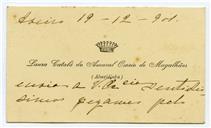 Aveiro 19-12-901.
Laura Catalã do Amaral Osorio de Magalhães
(Almeidinha)
envia a V. Ex.cia Sentidis
simos pezames pelo